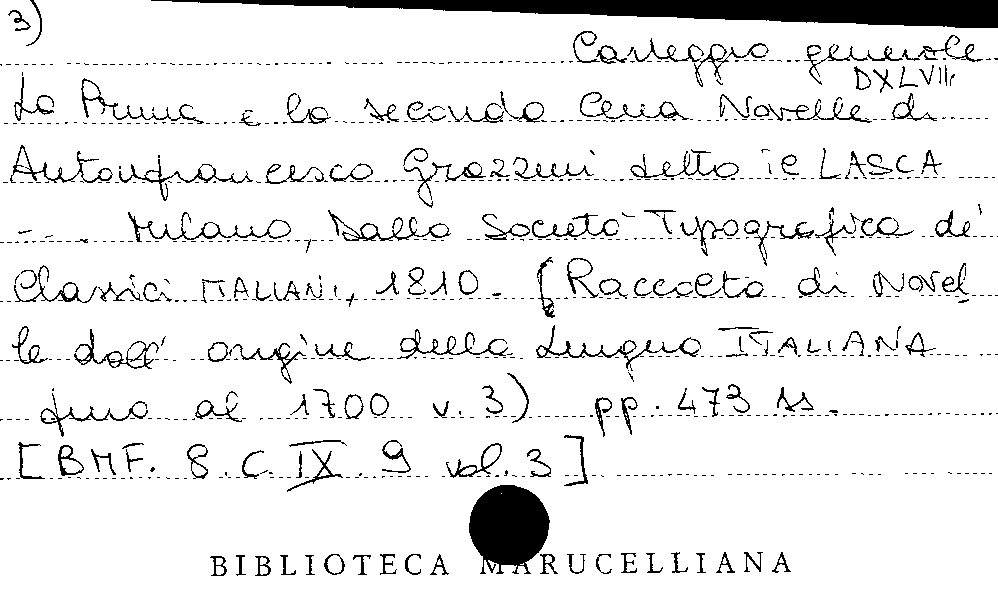 3)
Carteggio generale
DXLVIII
La Prima e la seconda Cena Novelle di
Antonfrancesco Grazzini detto il LASCA
--. Milano, Dalla Società Typografica de'
Classici ITALIANI, 1810. (Raccolta di Novel
le dall' origine della Lingua ITALIANA
fino al 1700 v. 3) pp. 473 ss.
[BMF. 8. C. IX. 9 vol. 3]
BIBLIOTECA MARUCELLIANA